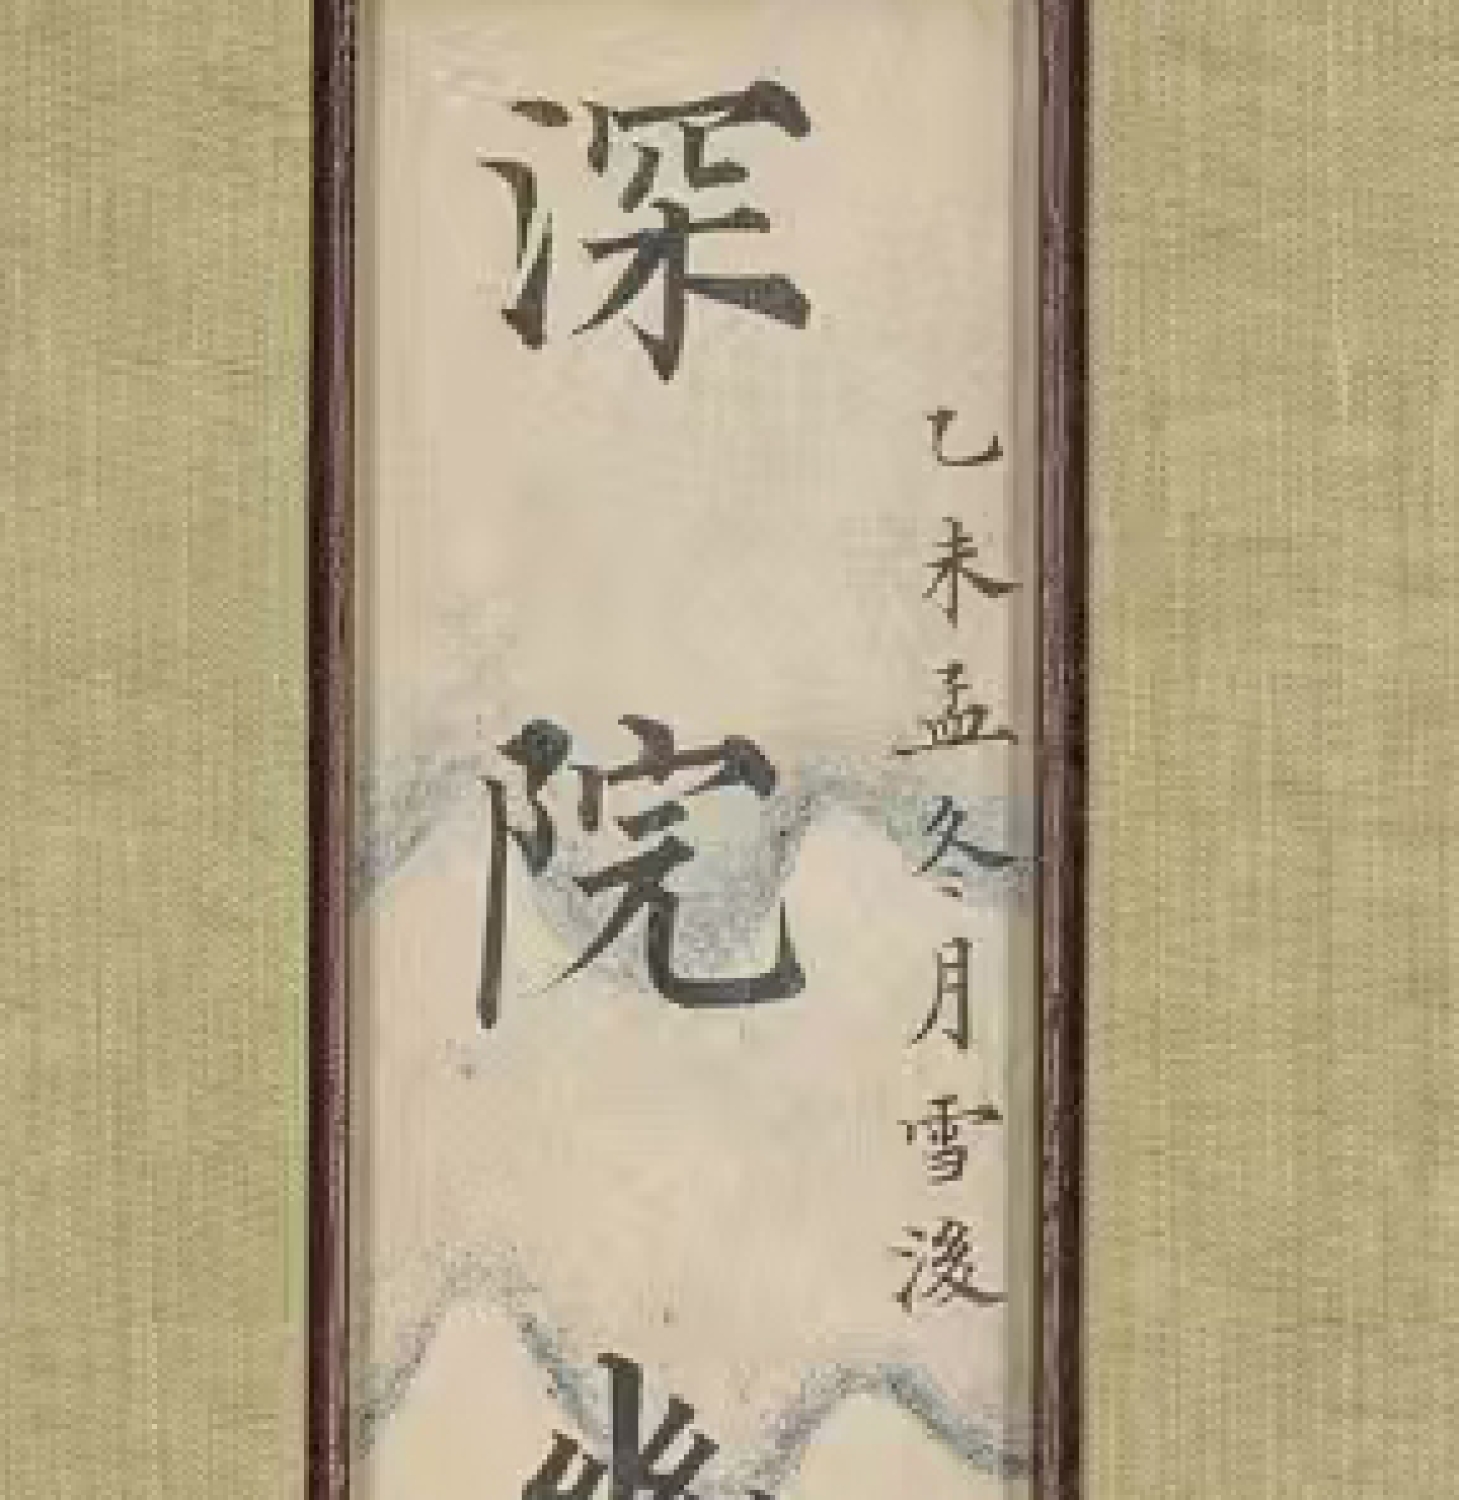 乙未孟冬月雪後
深院幽